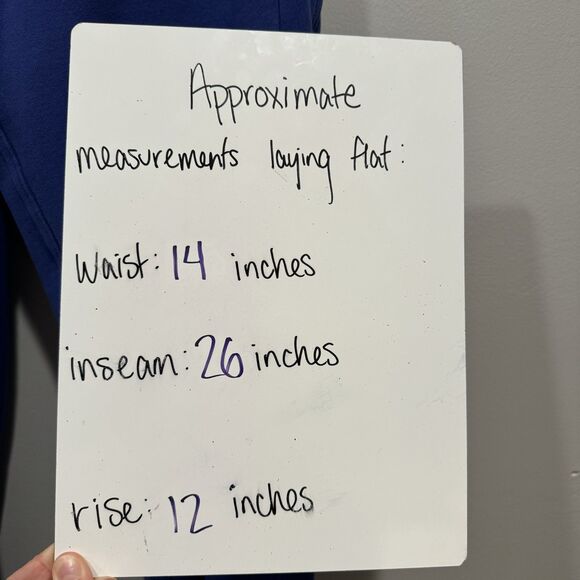 Approximate
measurements laying flat:
Waist: 14 inches
inseam: 26 inches
rise: 12 inches